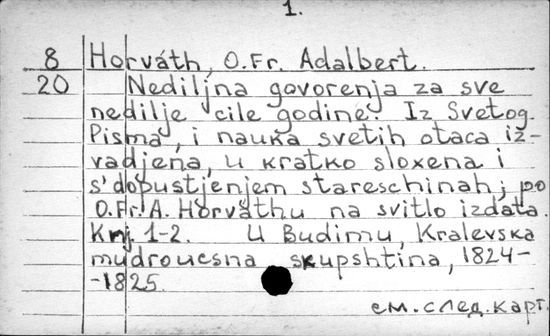 1.
8 Horváth, O.Fr. Adalbert.
20 Nediljna govorenja za sve
nedilje cile godine. Iz Svetog
Pisma, i nauka svetih otaca iz-
vadjena, u kratko sloxena i
s'dopustjenjem stareschinah; po
O.Fr.A. Horváthu na svitlo izdata.
Knj. 1-2. U Budimu, Kralevska
mudroucsna skupshtina, 1824-
-1825.
см. след. карт.